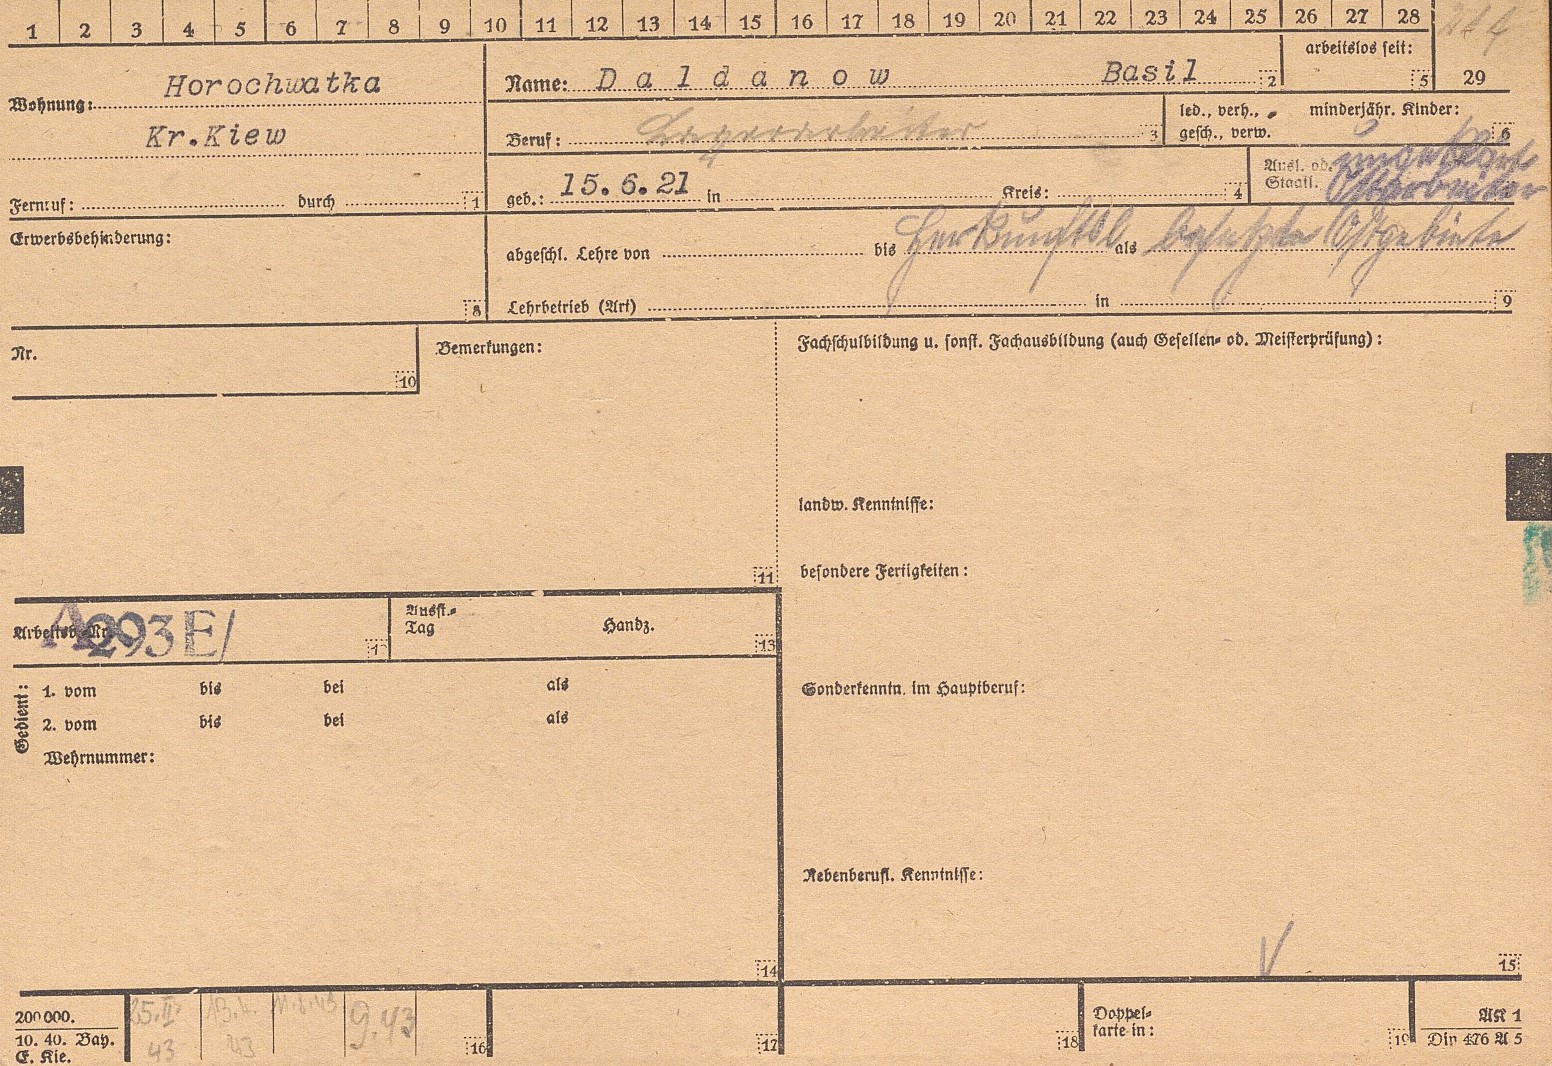 1 2 3 4 5 6 7 8 9 10 11 12 13 14 15 16 17 18 19 20 21 22 23 24 25 26 27 28
Wohnung: Horochwatka
Kr.Kiew
Fernruf: durch 1
Name: Daldanow Basil 2
arbeitslos seit: 5
29
Beruf: Lagerarbeiter 3
led., verh., gesch., verw.
minderjähr. Kinder: 6
geb.: 15.6.21 in Kreis: 4
Ausl. od. Staatl. Ostarbeiter
Erwerbsbehinderung: 8
abgeschl. Lehre von bis als
Herkunftsl besetzte Ostgebiete
Lehrbetrieb (Art) in 9
Nr. 10
Bemerkungen: 11
Fachschulbildung u. sonst. Fachausbildung (auch Gesellen- od. Meisterprüfung):
landw. Kenntnisse:
besondere Fertigkeiten:
Arbeitsb. Nr. A 293 E/ 12
Ausst.-Tag Handz. 13
Gedient:
1. vom bis bei als
2. vom bis bei als
Wehrnummer:
14
Sonderkenntn. im Hauptberuf:
Nebenberufl. Kenntnisse:
15
200 000.
10. 40. Bay.
E. Kie.
25.II. 43
13.4. 43
11.8.43
9.43
16 17 18
Doppelkarte in: 19
AK 1
Din 476 A 5